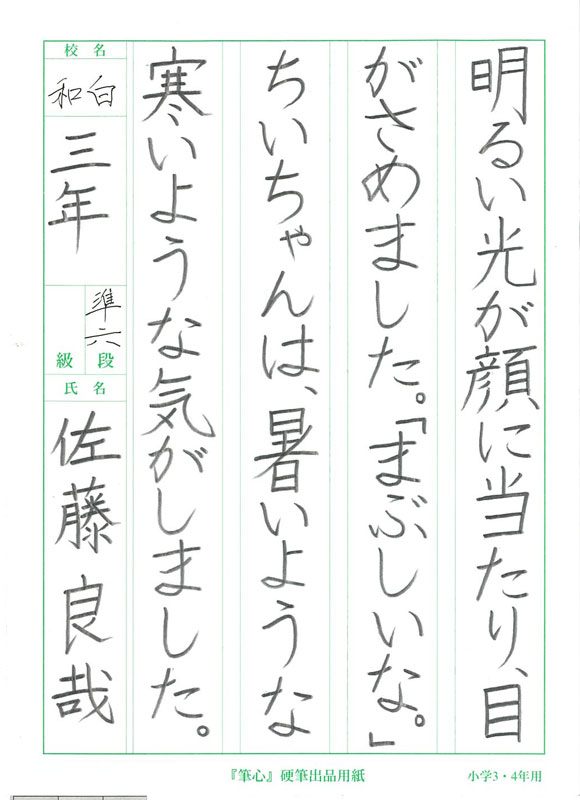 明るい光が顔に当たり、目
がさめました。「まぶしいな。」
ちいちゃんは、暑いような
寒いような気がしました。
校名
和白
三年
準六
段
級
氏名
佐藤良哉
『筆心』硬筆出品用紙
小学3・4年用